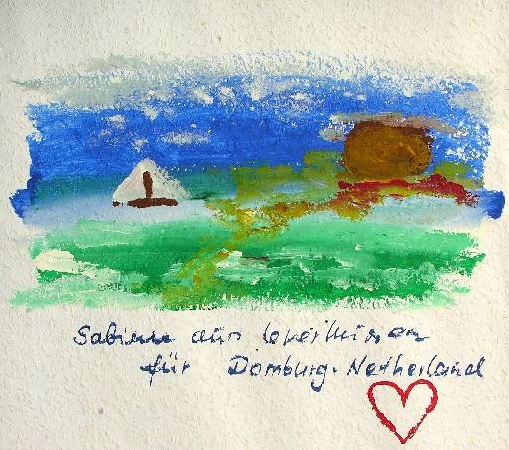 Sabine aus Leverkusen
für Domburg. Netherland